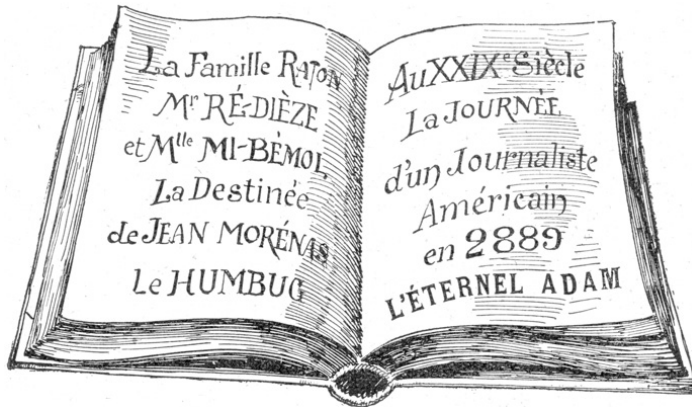 La Famille RATON
Mr RÉ-DIÈZE
et Mlle MI-BÉMOL
La Destinée
de JEAN MORÉNAS
Le HUMBUG
Au XXIXe Siècle
La JOURNÉE
d'un Journaliste
Américain
en 2889
L'ÉTERNEL ADAM